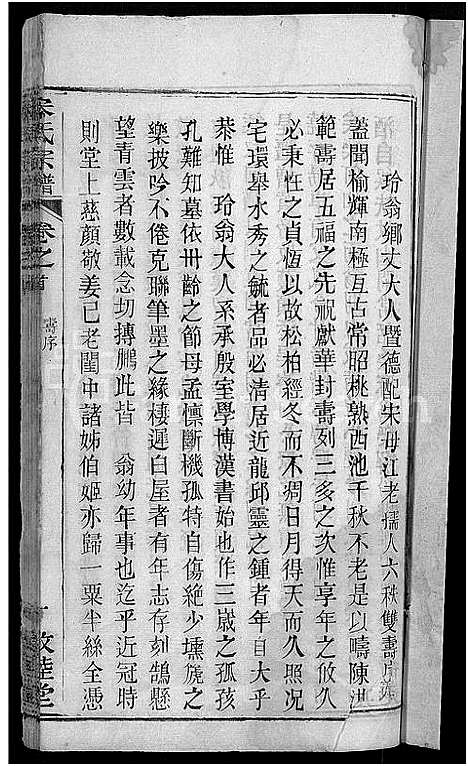 玲翁鄉丈大人暨德配宋母江老孺人六秩雙壽序
蓋聞榆輝南極亙古常昭桃熟西池千秋不老是以疇陳洪
範壽居五福之先祝獻華封壽列三多之次惟享年之攸久
必秉性之貞恆以故松柏經冬而不凋日月得天而久照況
宅環舉水秀之毓者品必清居近龍邱靈之鍾者年自大乎
恭惟　玲翁大人系承殷室學博漢書始也作三歲之孤孩
孔難知墓依卅齡之節母孟懍斷機孤特自傷絕少壎篪之
樂披吟不倦克聯筆墨之緣棲遲白屋者有年志存刻鵠懸
望青雲者數載念切摶鵬此皆　翁幼年事也迄乎近冠時
則堂上慈顏敬姜已老閨中諸姊伯姬亦歸一粟半絲全憑
宋氏宗譜
卷之首
壽序
一
敦睦堂